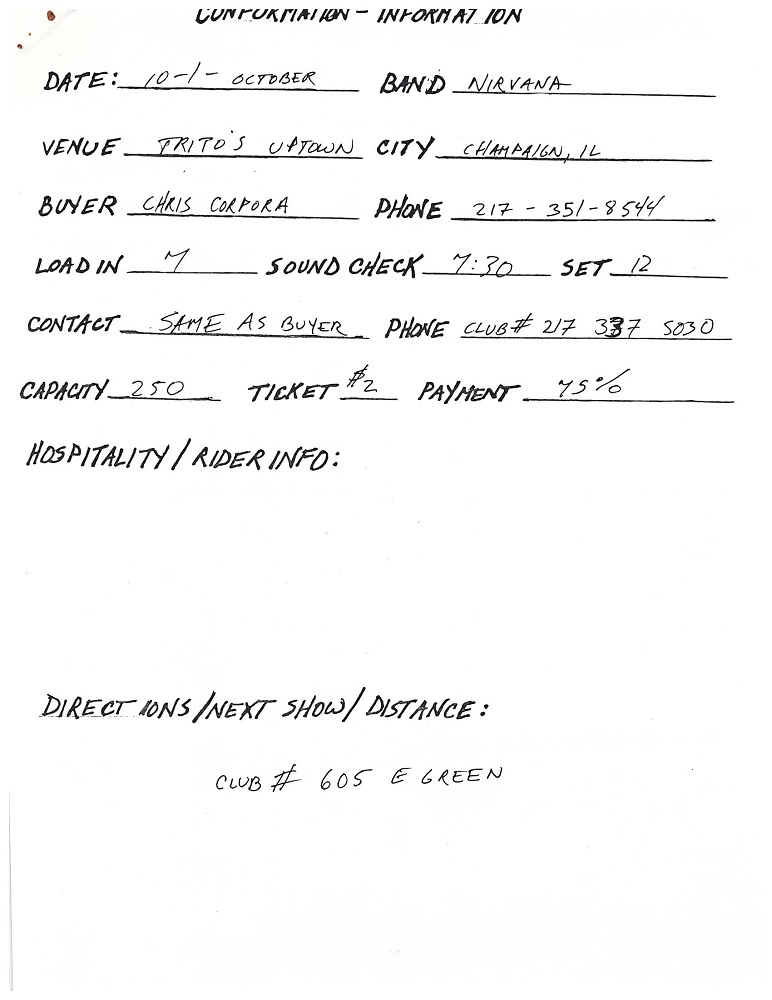 CONFORMATION - INFORMATION
DATE: 10-1- OCTOBER BAND NIRVANA
VENUE TRITO'S UPTOWN CITY CHAMPAIGN, IL
BUYER CHRIS CORPORA PHONE 217 - 351-8544
LOAD IN 7 SOUND CHECK 7:30 SET 12
CONTACT SAME AS BUYER PHONE CLUB# 217 337 5030
CAPACITY 250 TICKET $2 PAYMENT 75%
HOSPITALITY / RIDER INFO:
DIRECTIONS/NEXT SHOW/DISTANCE:
CLUB # 605 E GREEN